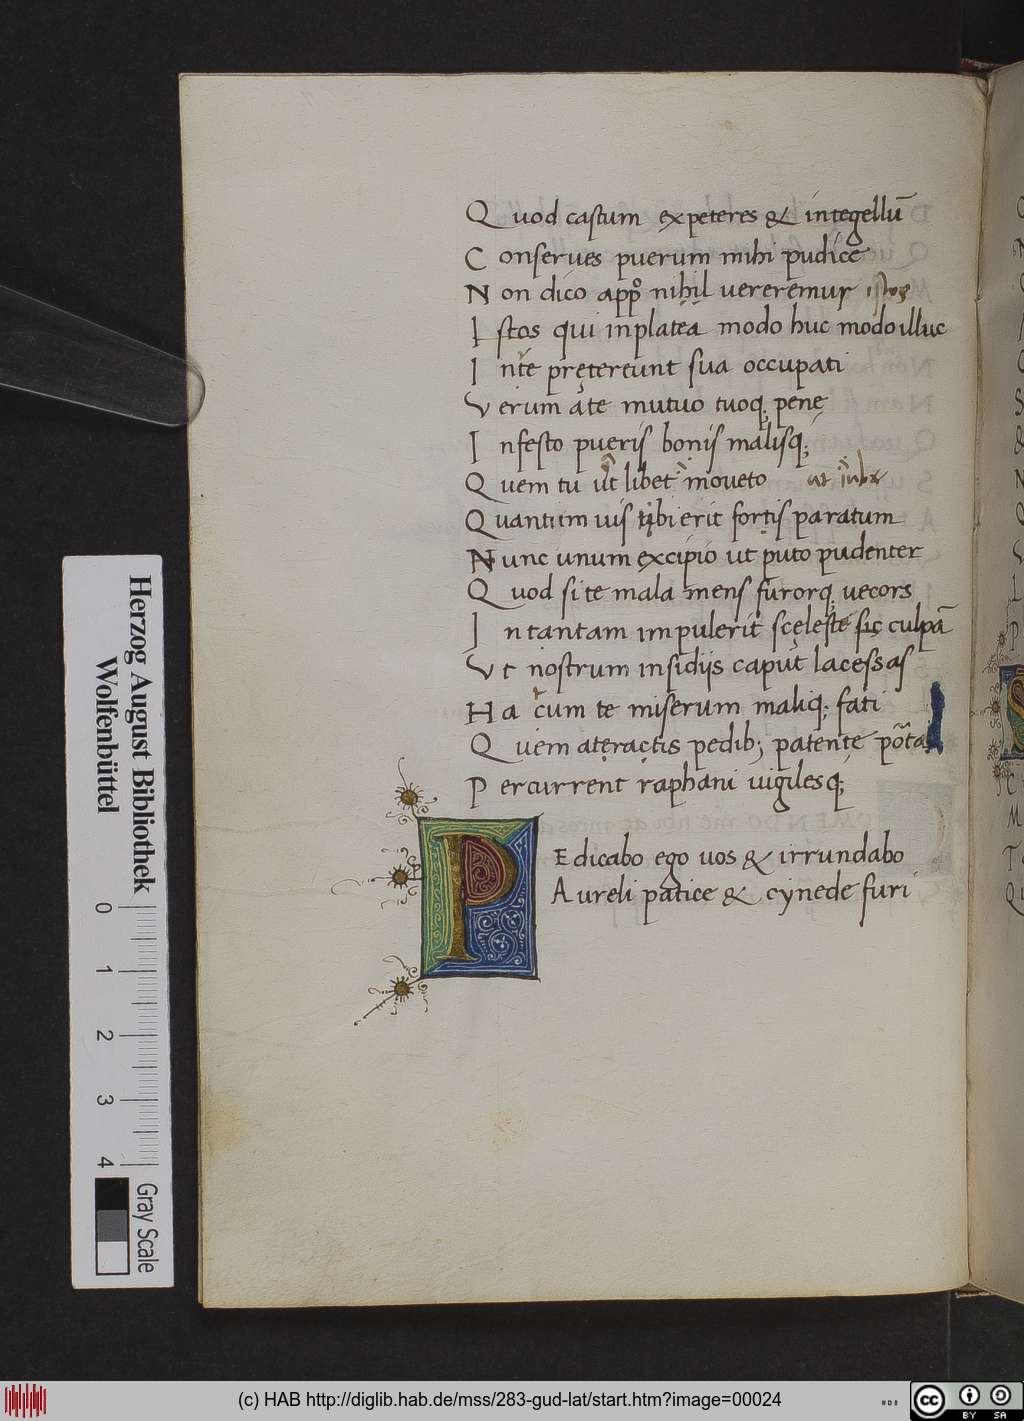 Quod castum expeteres & integellū
Conserves puerum mihi pudice
Non dico appͦ nihil vereremur istos
Istos qui inplatea modo huc modo illuc
Inre prętereunt sua occupati
Verum ate metuo tuoq; pene
Infesto pueris bonis malisq;
Quem tu ut libet moveto
Quantum uis tibi erit foris paratum
Nunc unum excipio ut puto pudenter
Quod si te mala mens furorq; uecors
In tantam impulerit sceleste sic culpā
Vt nostrum insidiis caput lacessas
Ha tum te miserum maliq; fati
Quem atractis pedib; patente
Percurrent raphani uigilesq;
PEdicabo ego uos & irrundabo
Aureli patice & cynede furi
Herzog August Bibliothek
Wolfenbüttel
0 1 2 3 4
Gray Scale
(c) HAB http://diglib.hab.de/mss/283-gud-lat/start.htm?image=00024
cc BY SA